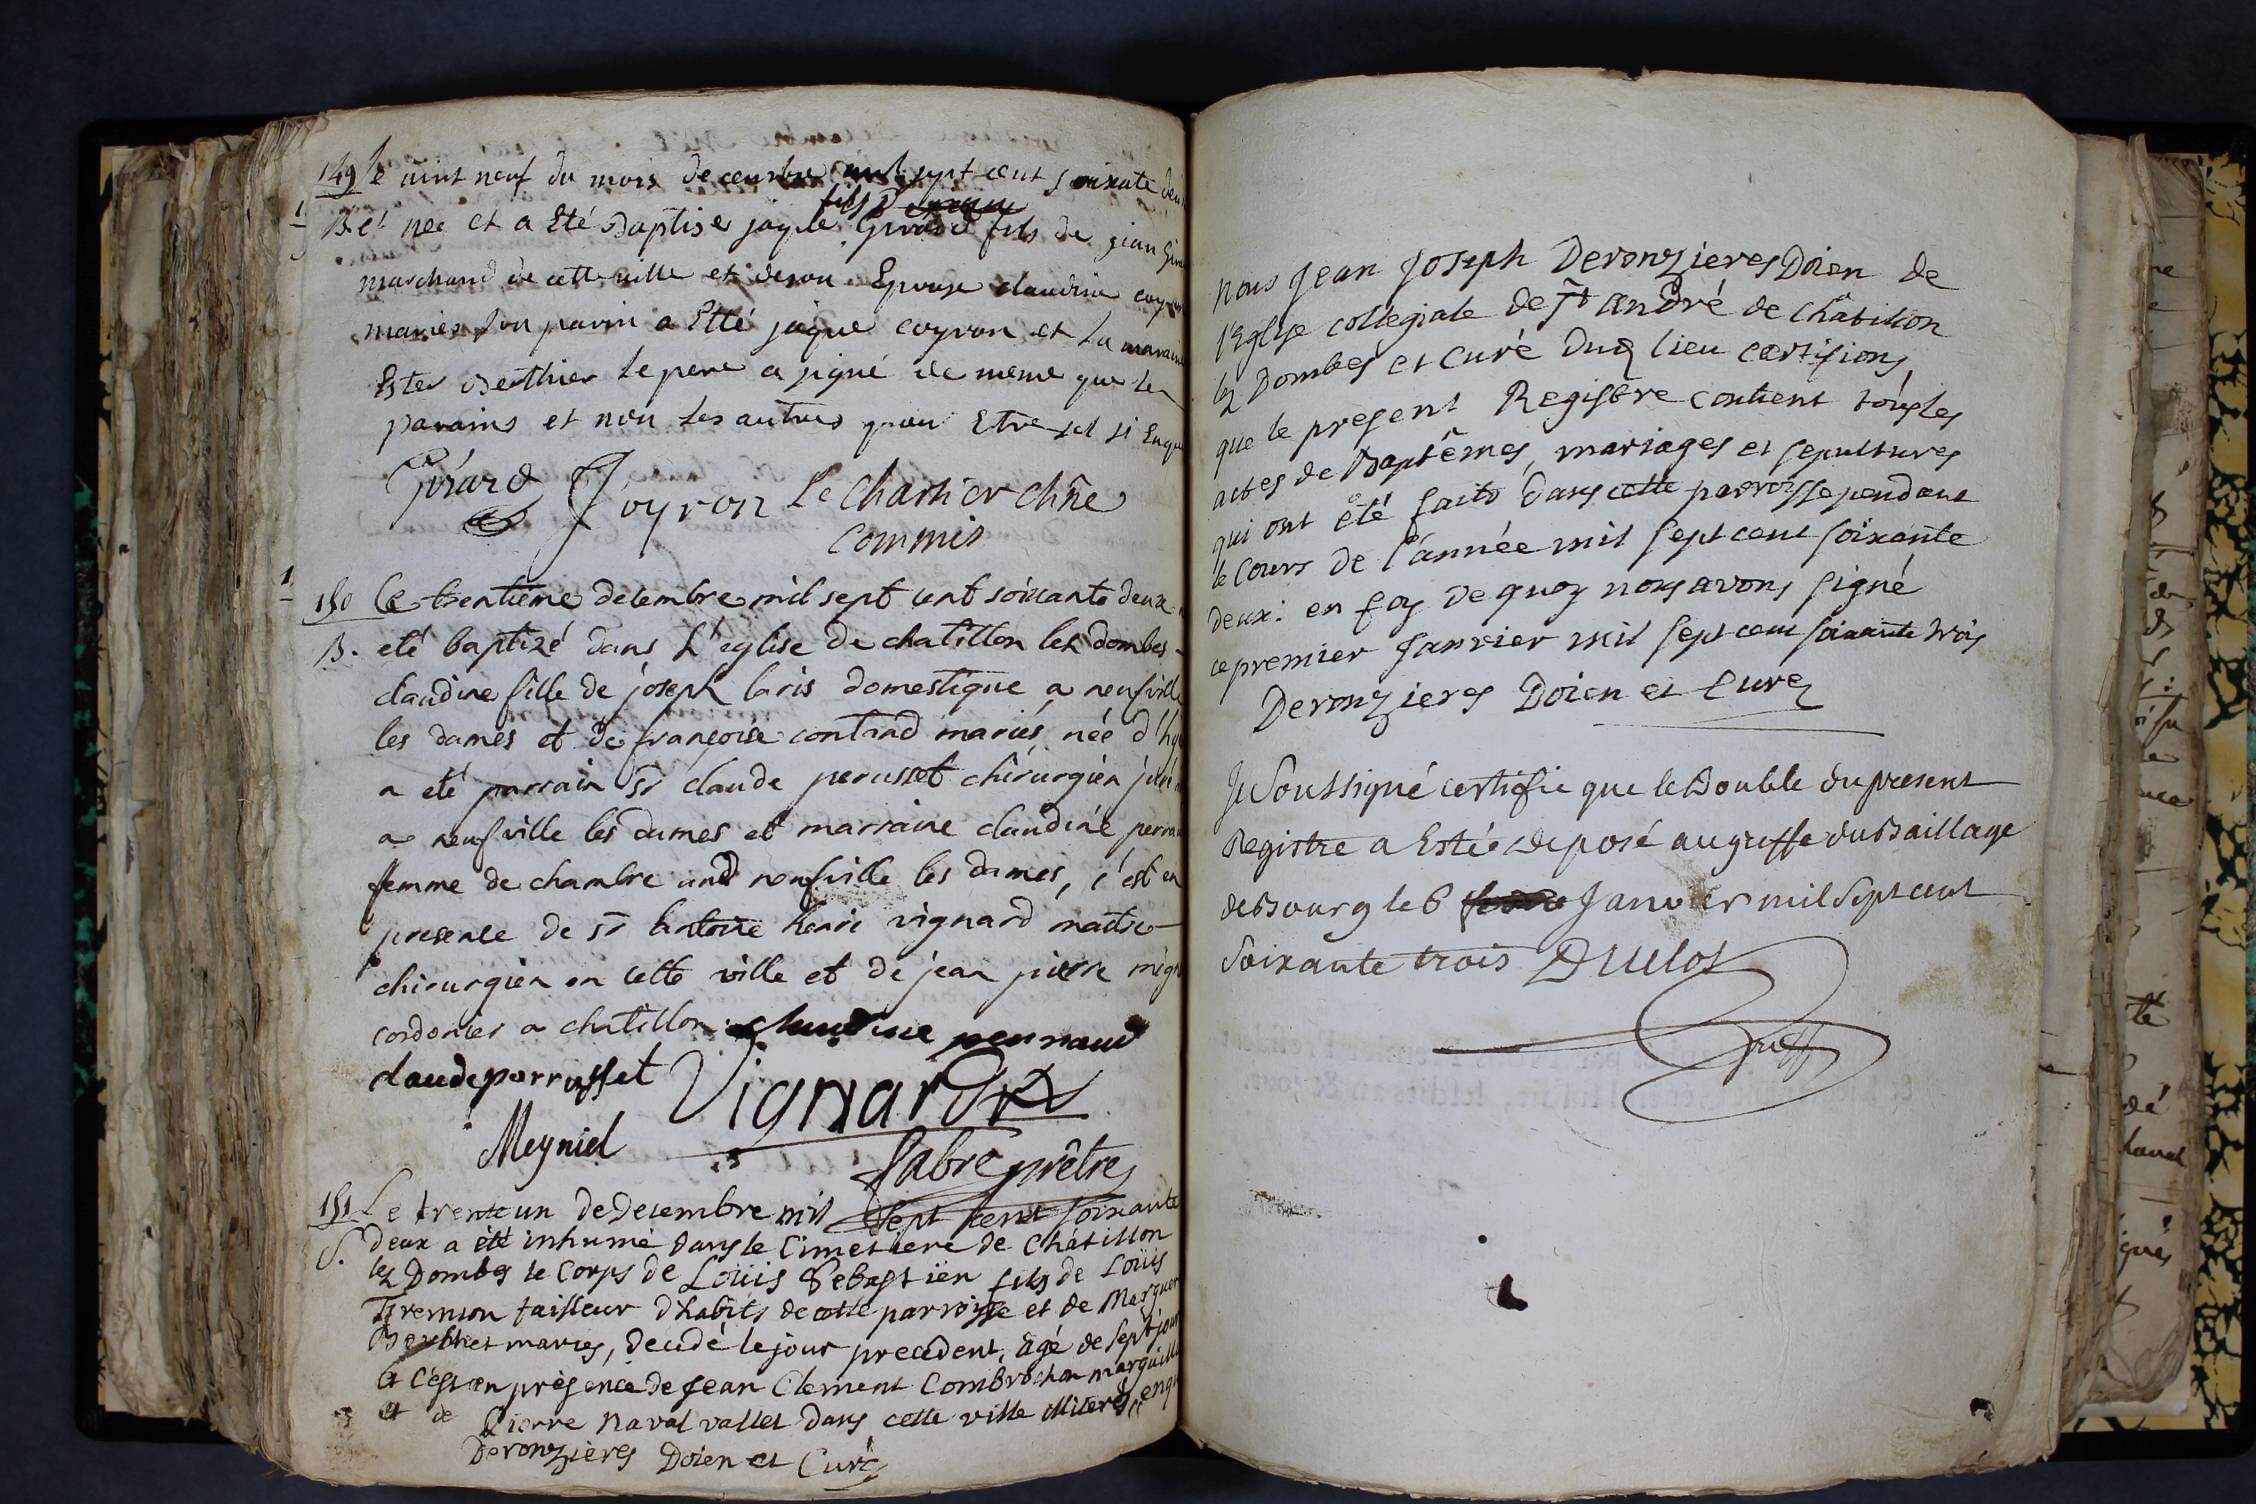 149 le vint neuf du mois decembre mil sept cent soixate deux
fils d
B. et nee et a Eté Baptise jaque Girard fils de jian
marchand de cette ville et deson Epouse claudine
maries son parin a Etté jaque coyron et La maraine
Ester Berthier Le pere a signé de meme que le
parains et non Les autres pour Etre
Girard Joyron Le Chartier chñe
commis
150 Ce trentieme decembre mil sept cent soixante deux a
B. eté baptizé dans L'eglise de chatillon les dombes
claudine fille de joseph laris domestique a neufville
les dames et de françoise contrad mariés née d'hyer
a eté parrain Sr claude perusset chirurgien juré
a neufville les dames et marraine claudine
femme de chambre neufville les dames, c'est en
presence de sr Antoine henri vignard maitre
chirurgien en cette ville et de jean pierre
cordonier a chatillon. claudine pernaud
claude perrusset Vignard
Meyniel
fabre prêtre
151 Le trente un de Decembre mil sept cent soixante
S. deux a été inhumé dans le Cimetiere de Châtillon
lez Dombes le Corps de Loüis Sebastïen fils de Loüis
tailleur d'habits de cette parroisse et de
Berthet mariés, decedé le jour precedent, âgé de sept jours
et c'est en présence de Jean Clement Combrochon marguillier
et de Pierre Naval vallet dans cette ville illiterés enquis
Deronzieres Doïen et Curé
nous Jean Joseph Deronzieres Doïen de
l'Eglise collegiale de St André de Châtillon
lez Dombes et Curé dud lieu certifions
que le present Registre contient tous les
actes de Baptêmes, mariages et sepultures
qui ont été faits dans cette parroisse pendant
le cours de l'année mil sept cent soixante
deux: en foy de quoy nous avons signé
ce premier Janvier mil sept cent soixante trois
Deronzieres Doïen et Curé
Je Soussigné certifie que le Double du present
Registre a Esté deposé au greffe du Baillage
de Bourg le 6 Janvier mil Sept cent
Soixante trois Duclos
Greff